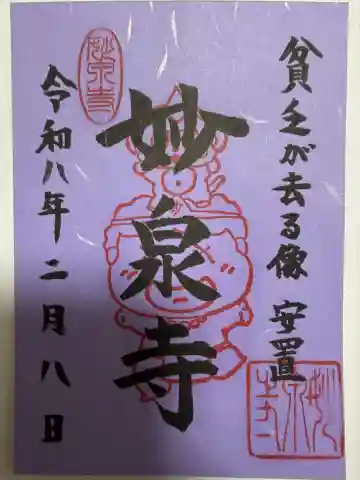 貧乏が去る像 安置
妙泉寺
令和八年二月八日
妙泉寺
妙泉寺